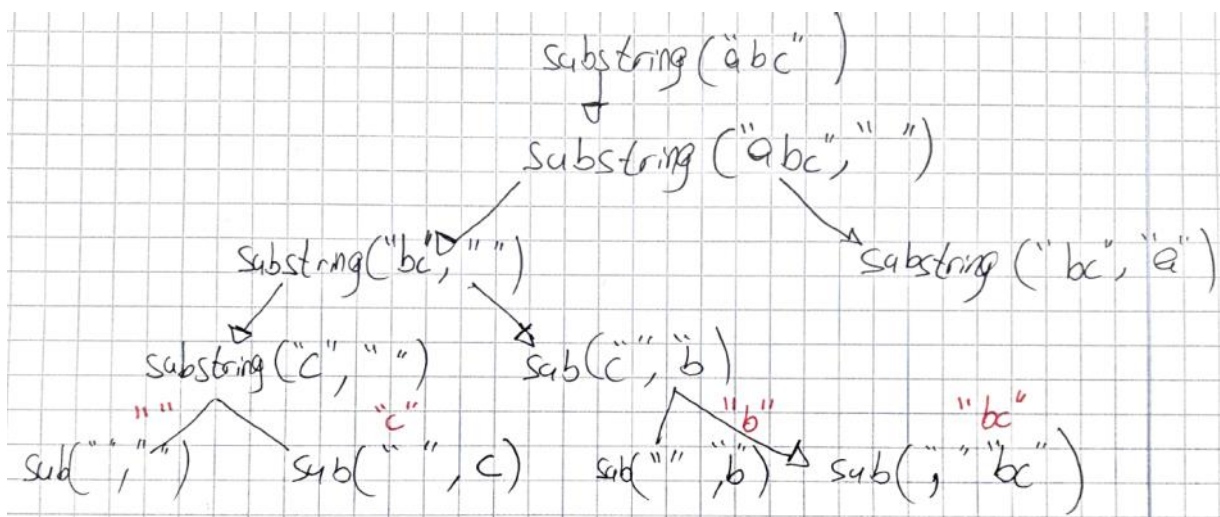 substring("abc")
substring("abc", " ")
substring("bc", " ") substring("bc", "a")
substring("c", " ") sub("c", "b)
" " "c" "b" "bc"
sub(" ", " ") sub(" ", c) sub(" ", b) sub(, " "bc")